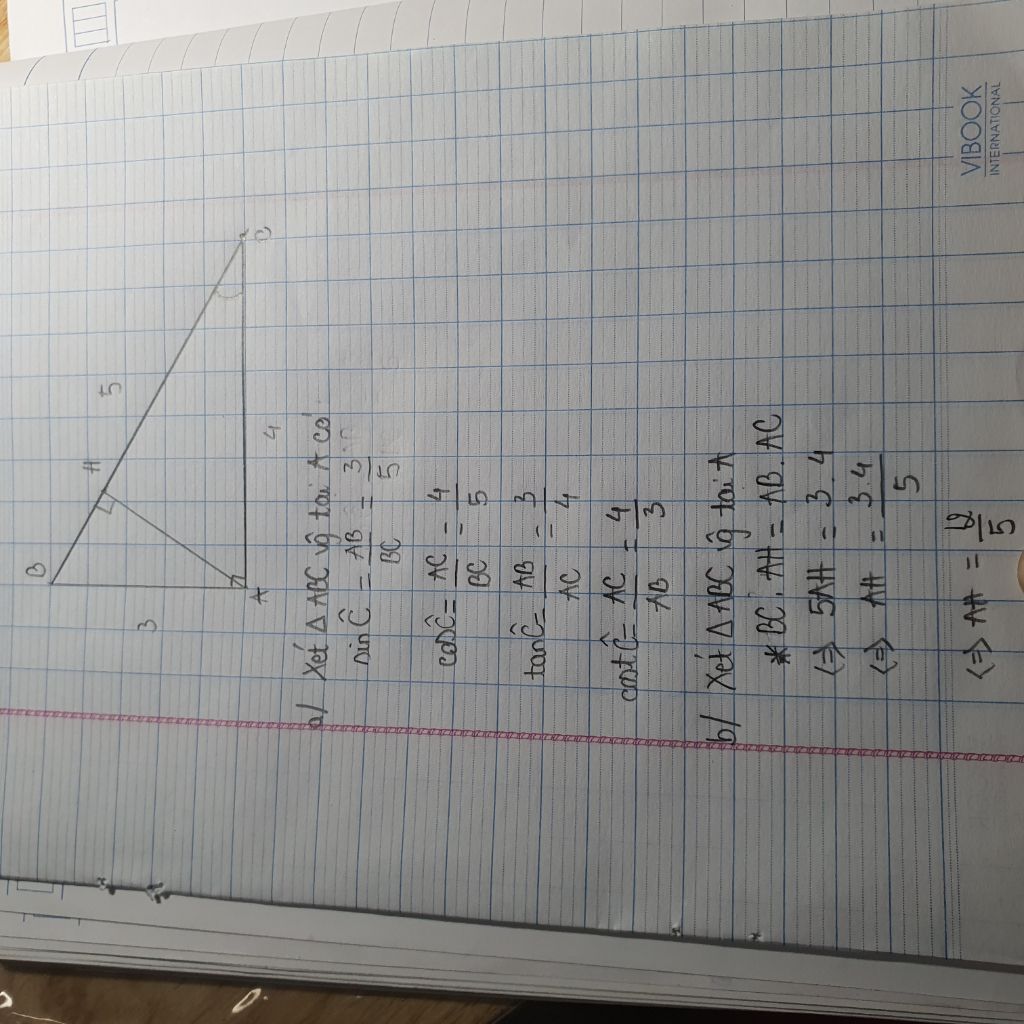 B
H
5
3
A
4
C
a/ Xét △ ABC vg tại A có
sin Ĉ = AB/BC = 3/5
cos Ĉ = AC/BC = 4/5
tan Ĉ = AB/AC = 3/4
cost Ĉ = AC/AB = 4/3
b/ Xét △ ABC vg tại A
* BC . AH = AB . AC
<=> 5AH = 3 . 4
<=> AH = 3.4/5
<=> AH = 12/5
VIBOOK
INTERNATIONAL